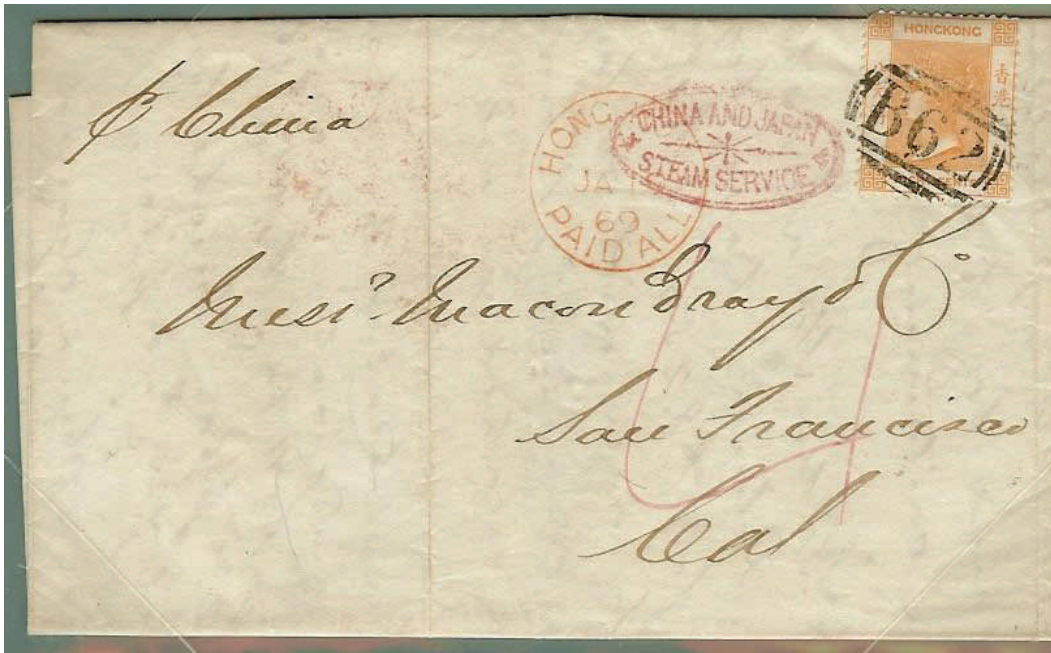 HONGKONG
香港
B62
HONG
JA 1
69
PAID ALL
CHINA AND JAPAN
STEAM SERVICE
pr China
Messrs. Macondray & Co
San Francisco
Cal